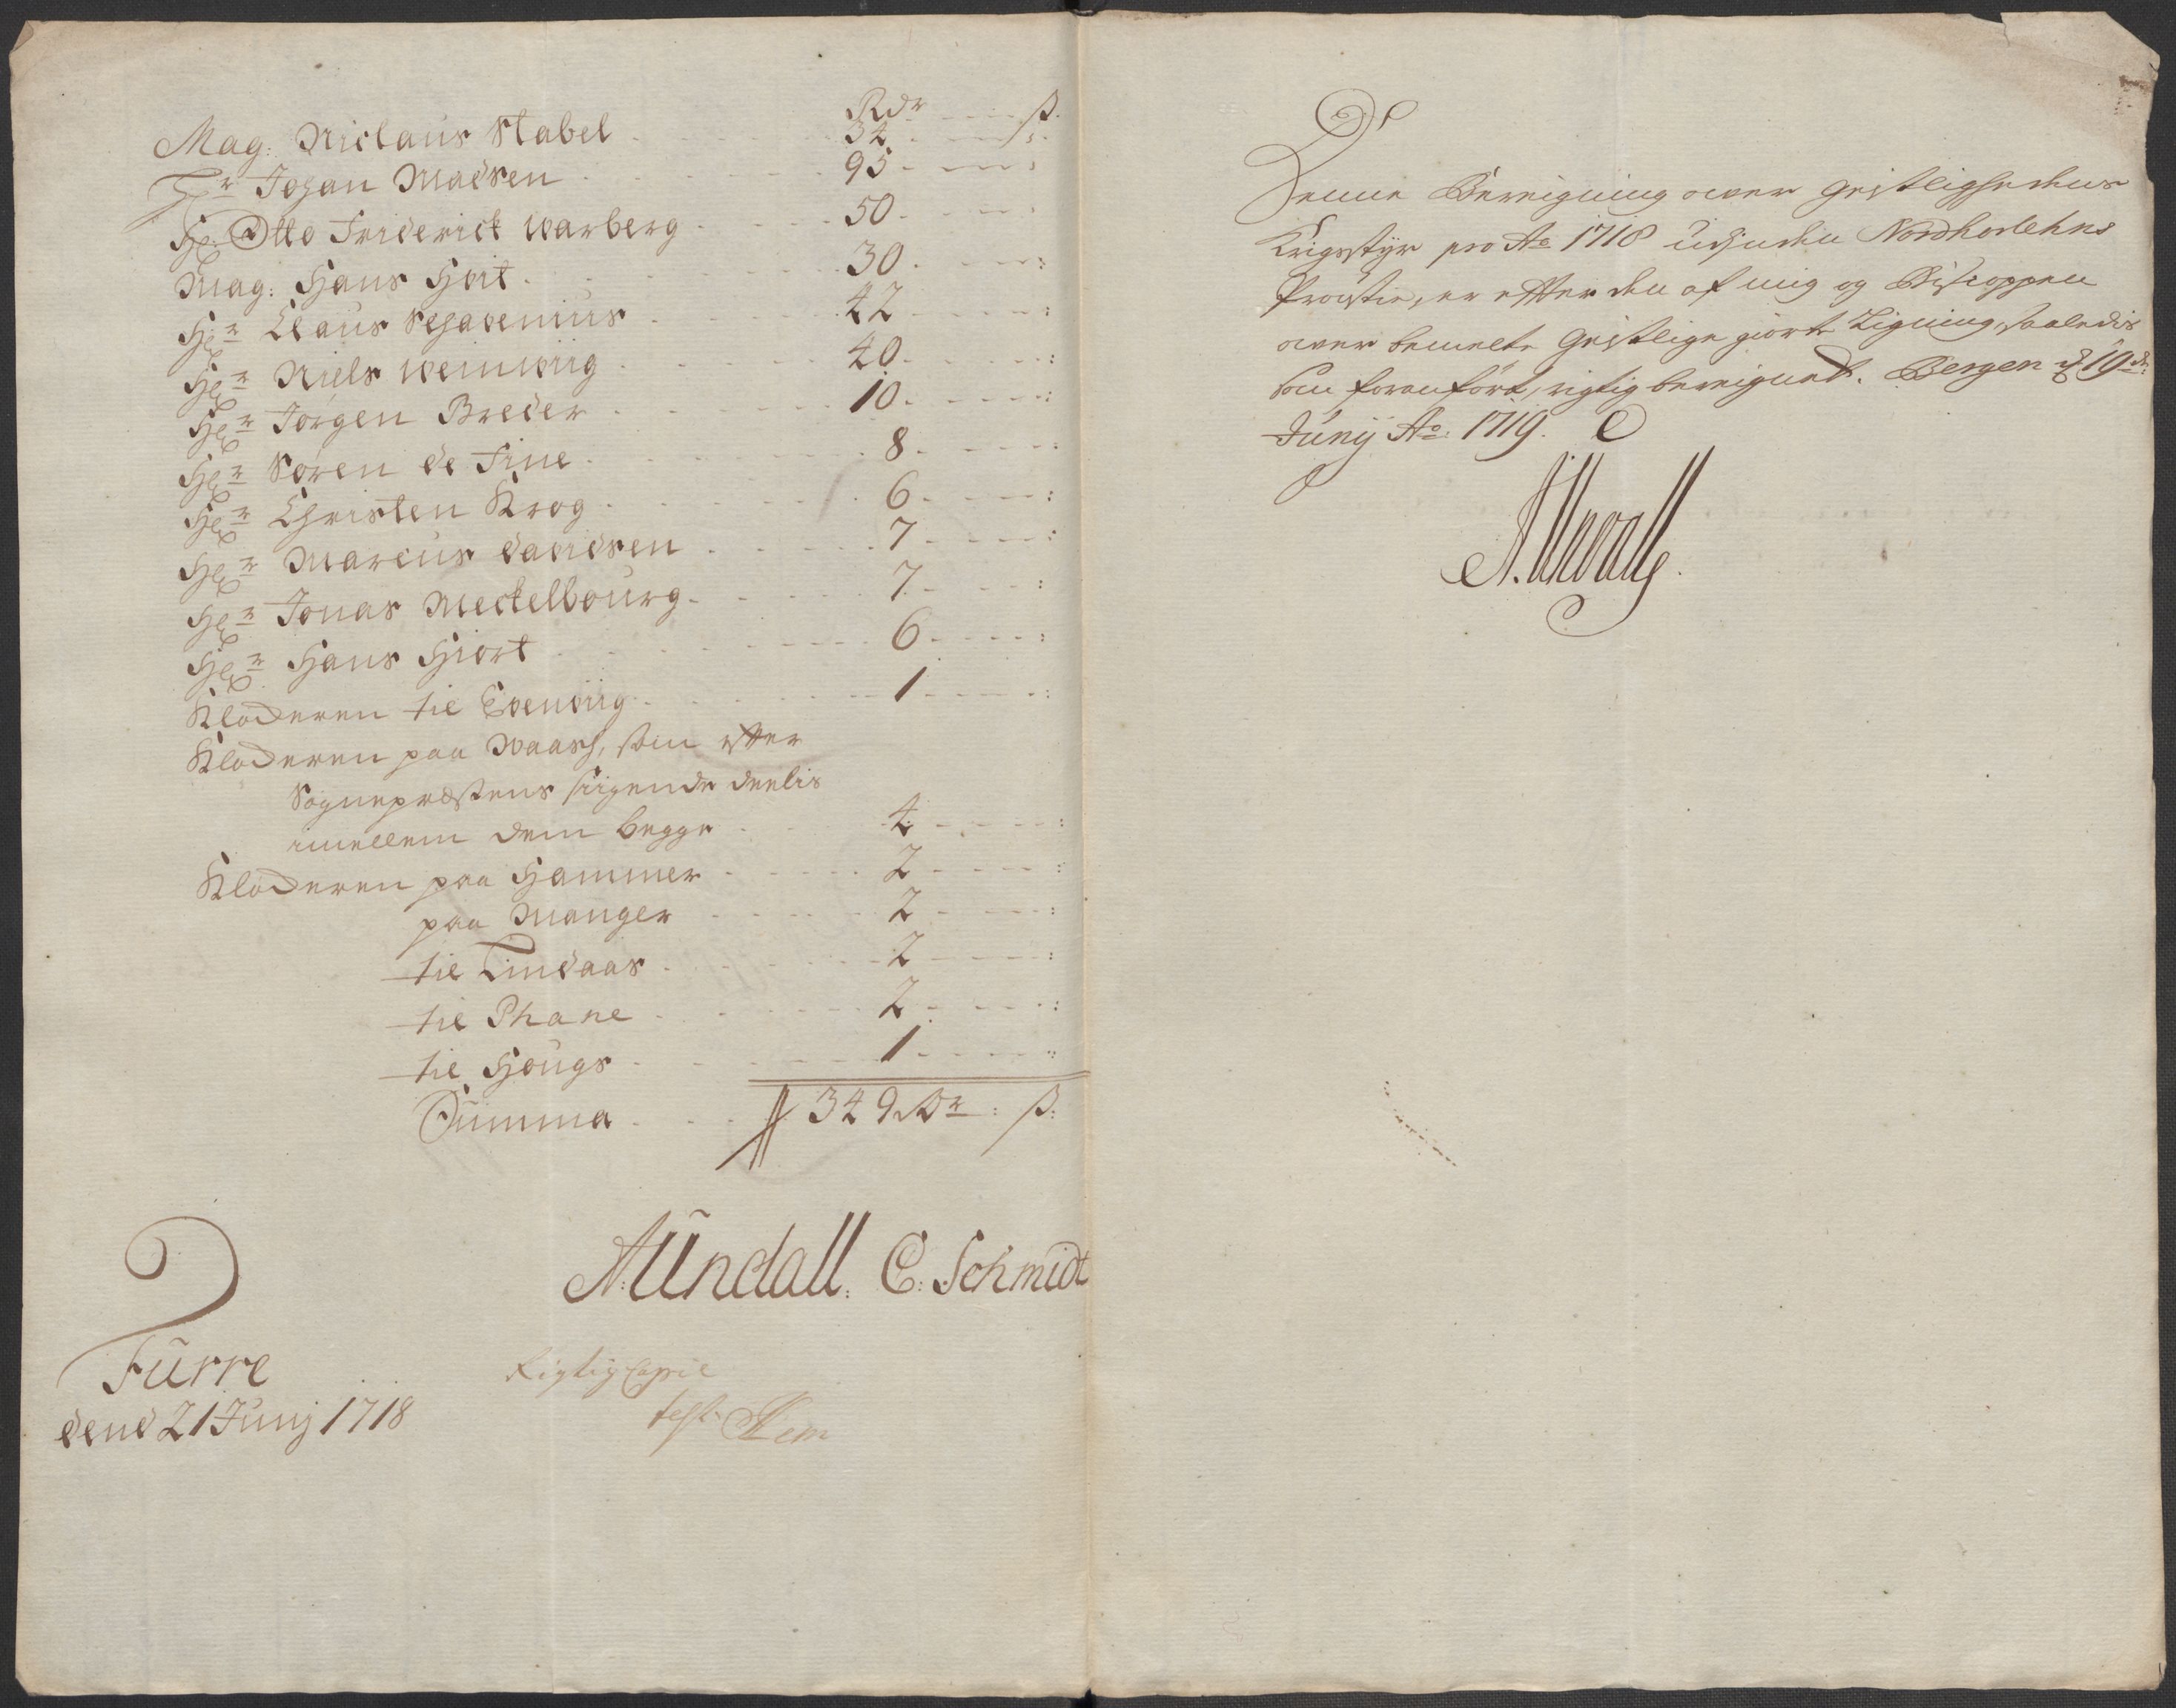 Rdr ß.
Mag: Niclaus Stabel 34
Hr Johan Madsen 95
Hr: Otto Friderick Warberg 50
Mag: Hans Hvit 30
Hr Claus Schavenius 42
Hr Niels Weinwiig 40
Hr Jørgen Breder 10
Hr Søren de Fine 8
Hr Christen Krog 6
Hr Marcus Davidsen 7
Hr Jonas Meckelbourg 7
Hr Hans Hiort 6
Klockeren til Evenwiig 1
Klockeren paa Waash, som efter
Sognepræstens sigende deelis
imellem dem begge 4
Klockeren paa Hammer 2
paa Manger 2
til Lindaas 2
til Phane 2
til Hougs 1
Summa 349 Rdr: ß:
A: Undall. C: Schmidt
Furre
dend 21 Junj 1718
Rigtig Copie
test
Denne Bereigning ower Geistlighedens
Krigsstyr pro Ao 1718 udj Nordhorlehns
Prowstie, er efter den af mig og Biscoppen
ower bemelte Geistlige giorte Ligning, saaledis
som foranført, rigtig bereignet. Bergen d 19de
Junij Ao: 1719.
A. Undall.